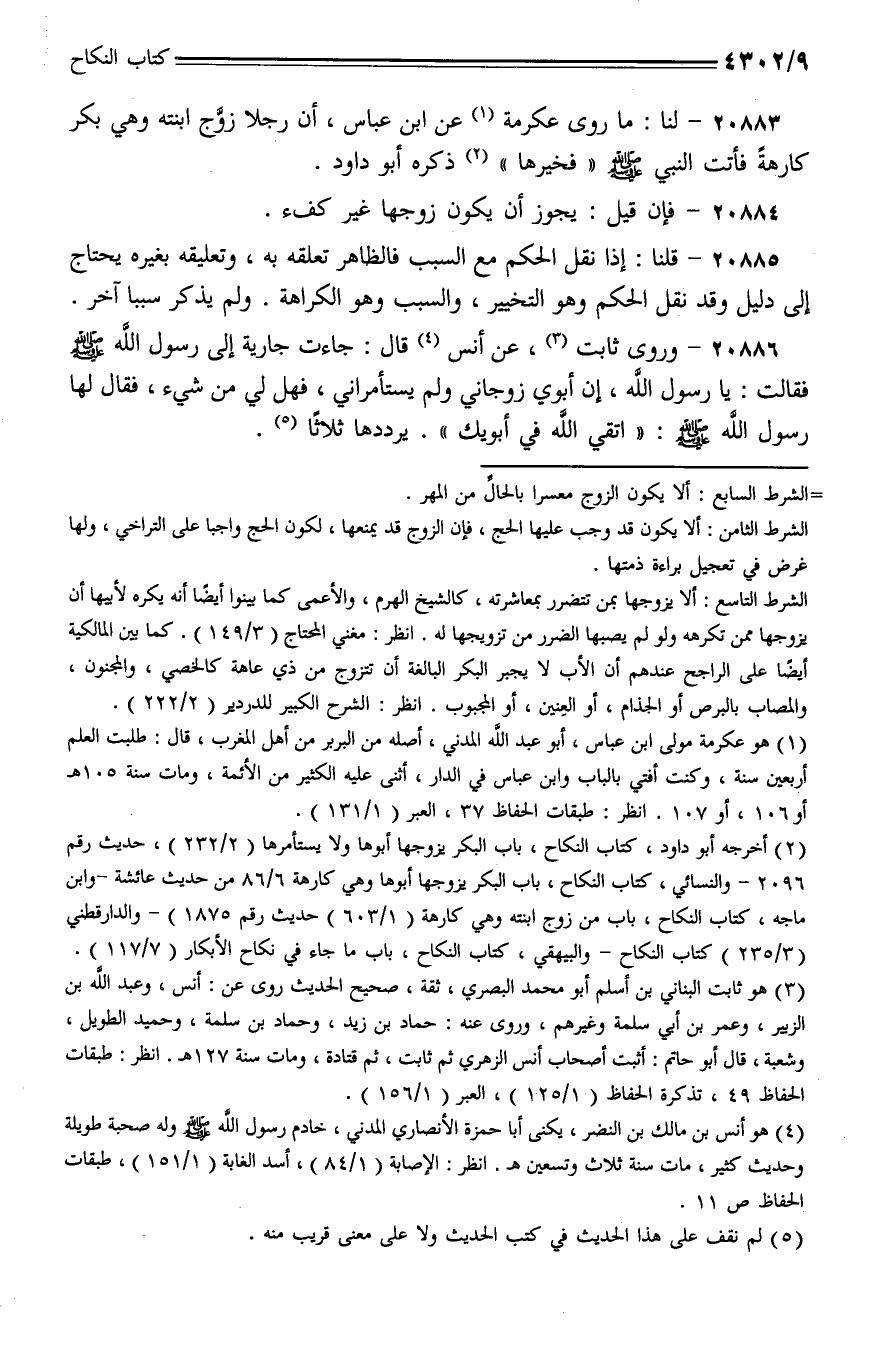 ٤٣٠٢/٩ كتاب النكاح
٢٠٨٨٣ - لنا : ما روى عكرمة (١) عن ابن عباس ، أن رجلا زوَّج ابنته وهي بكر
كارهةً فأتت النبي ﷺ « فخيرها » (٢) ذكره أبو داود .
٢٠٨٨٤ - فإن قيل : يجوز أن يكون زوجها غير كفء .
٢٠٨٨٥ - قلنا : إذا نقل الحكم مع السبب فالظاهر تعلقه به ، وتعليقه بغيره يحتاج
إلى دليل وقد نقل الحكم وهو التخيير ، والسبب وهو الكراهة . ولم يذكر سببا آخر .
٢٠٨٨٦ - وروى ثابت (٣) ، عن أنس (٤) قال : جاءت جارية إلى رسول اللَّه ﷺ
فقالت : يا رسول اللَّه ، إن أبوي زوجاني ولم يستأمراني ، فهل لي من شيء ، فقال لها
رسول اللَّه ﷺ : « اتقي اللَّه في أبويك » . يرددها ثلاثًا (٥) .
=الشرط السابع : ألا يكون الزوج معسرا بالحالِّ من المهر .
الشرط الثامن : ألا يكون قد وجب عليها الحج ، فإن الزوج قد يمنعها ، لكون الحج واجبا على التراخي ، ولها
غرض في تعجيل براءة ذمتها .
الشرط التاسع : ألا يزوجها بمن تتضرر بمعاشرته ، كالشيخ الهرم ، والأعمى كما بينوا أيضًا أنه يكره لأبيها أن
يزوجها ممن تكرهه ولو لم يصبها الضرر من تزويجها له . انظر : مغني المحتاج ( ١٤٩/٣ ) . كما بين المالكية
أيضًا على الراجح عندهم أن الأب لا يجبر البكر البالغة أن تتزوج من ذي عاهة كالخصي ، والمجنون ،
والمصاب بالبرص أو الجذام ، أو العِنين ، أو المجبوب . انظر : الشرح الكبير للدردير ( ٢٢٢/٢ ) .
(١) هو عكرمة مولى ابن عباس ، أبو عبد اللَّه المدني ، أصله من البربر من أهل المغرب ، قال : طلبت العلم
أربعين سنة ، وكنت أفتي بالباب وابن عباس في الدار ، أثنى عليه الكثير من الأئمة ، ومات سنة ١٠٥هـ
أو ١٠٦ ، أو ١٠٧ . انظر : طبقات الحفاظ ٣٧ ، العبر ( ١٣١/١ ) .
(٢) أخرجه أبو داود ، كتاب النكاح ، باب البكر يزوجها أبوها ولا يستأمرها ( ٢٣٢/٢ ) ، حديث رقم
٢٠٩٦ - والنسائي ، كتاب النكاح ، باب البكر يزوجها أبوها وهي كارهة ٨٦/٦ من حديث عائشة -وابن
ماجه ، كتاب النكاح ، باب من زوج ابنته وهي كارهة ( ٦٠٣/١ ) حديث رقم ١٨٧٥ ) - والدارقطني
( ٢٣٥/٣ ) كتاب النكاح - والبيهقي ، كتاب النكاح ، باب ما جاء في نكاح الأبكار ( ١١٧/٧ ) .
(٣) هو ثابت البناني بن أسلم أبو محمد البصري ، ثقة ، صحيح الحديث روى عن : أنس ، وعبد اللَّه بن
الزبير ، وعمر بن أبي سلمة وغيرهم ، وروى عنه : حماد بن زيد ، وحماد بن سلمة ، وحميد الطويل ،
وشعبة ، قال أبو حاتم : أثبت أصحاب أنس الزهري ثم ثابت ، ثم قتادة ، ومات سنة ١٢٧هـ . انظر : طبقات
الحفاظ ٤٩ ، تذكرة الحفاظ ( ١٢٥/١ ) ، العبر ( ١٥٦/١ ) .
(٤) هو أنس بن مالك بن النضر ، يكنى أبا حمزة الأنصاري المدني ، خادم رسول اللَّه ﷺ وله صحبة طويلة
وحديث كثير ، مات سنة ثلاث وتسعين هـ . انظر : الإصابة ( ٨٤/١ ) ، أسد الغابة ( ١٥١/١ ) ، طبقات
الحفاظ ص ١١ .
(٥) لم نقف على هذا الحديث في كتب الحديث ولا على معنى قريب منه .